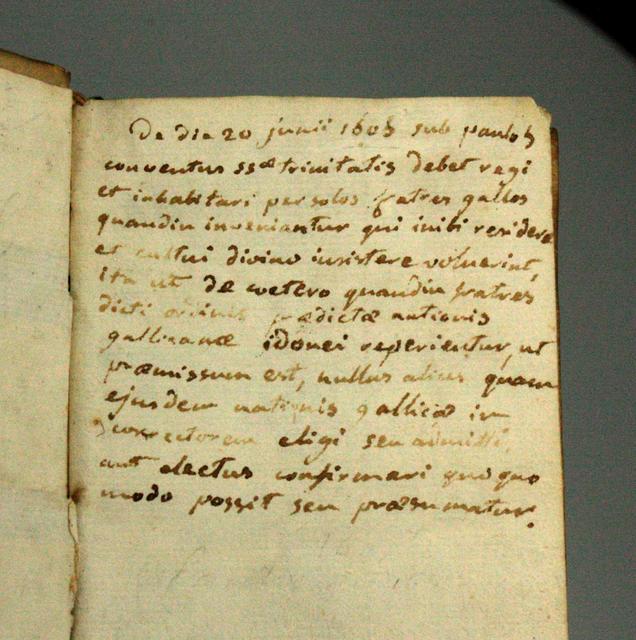 De die 20 junii 1605 sub paulo 5
conventus ss.æ trinitatis debet regi
et inhabitari per solos fratres gallos
quandiu inveniantur qui inibi residere
et cultui divino insistere voluerint,
ita ut de cœtero quandiu fratres
dicti ordinis prædictæ nationis
gallicanæ idonei reperientur, ut
præmissum est, nullus alius quam
ejusdem nationis gallicæ in
correctorem eligi seu admitti,
aut electus confirmari quoquo
modo possit seu præsumatur.